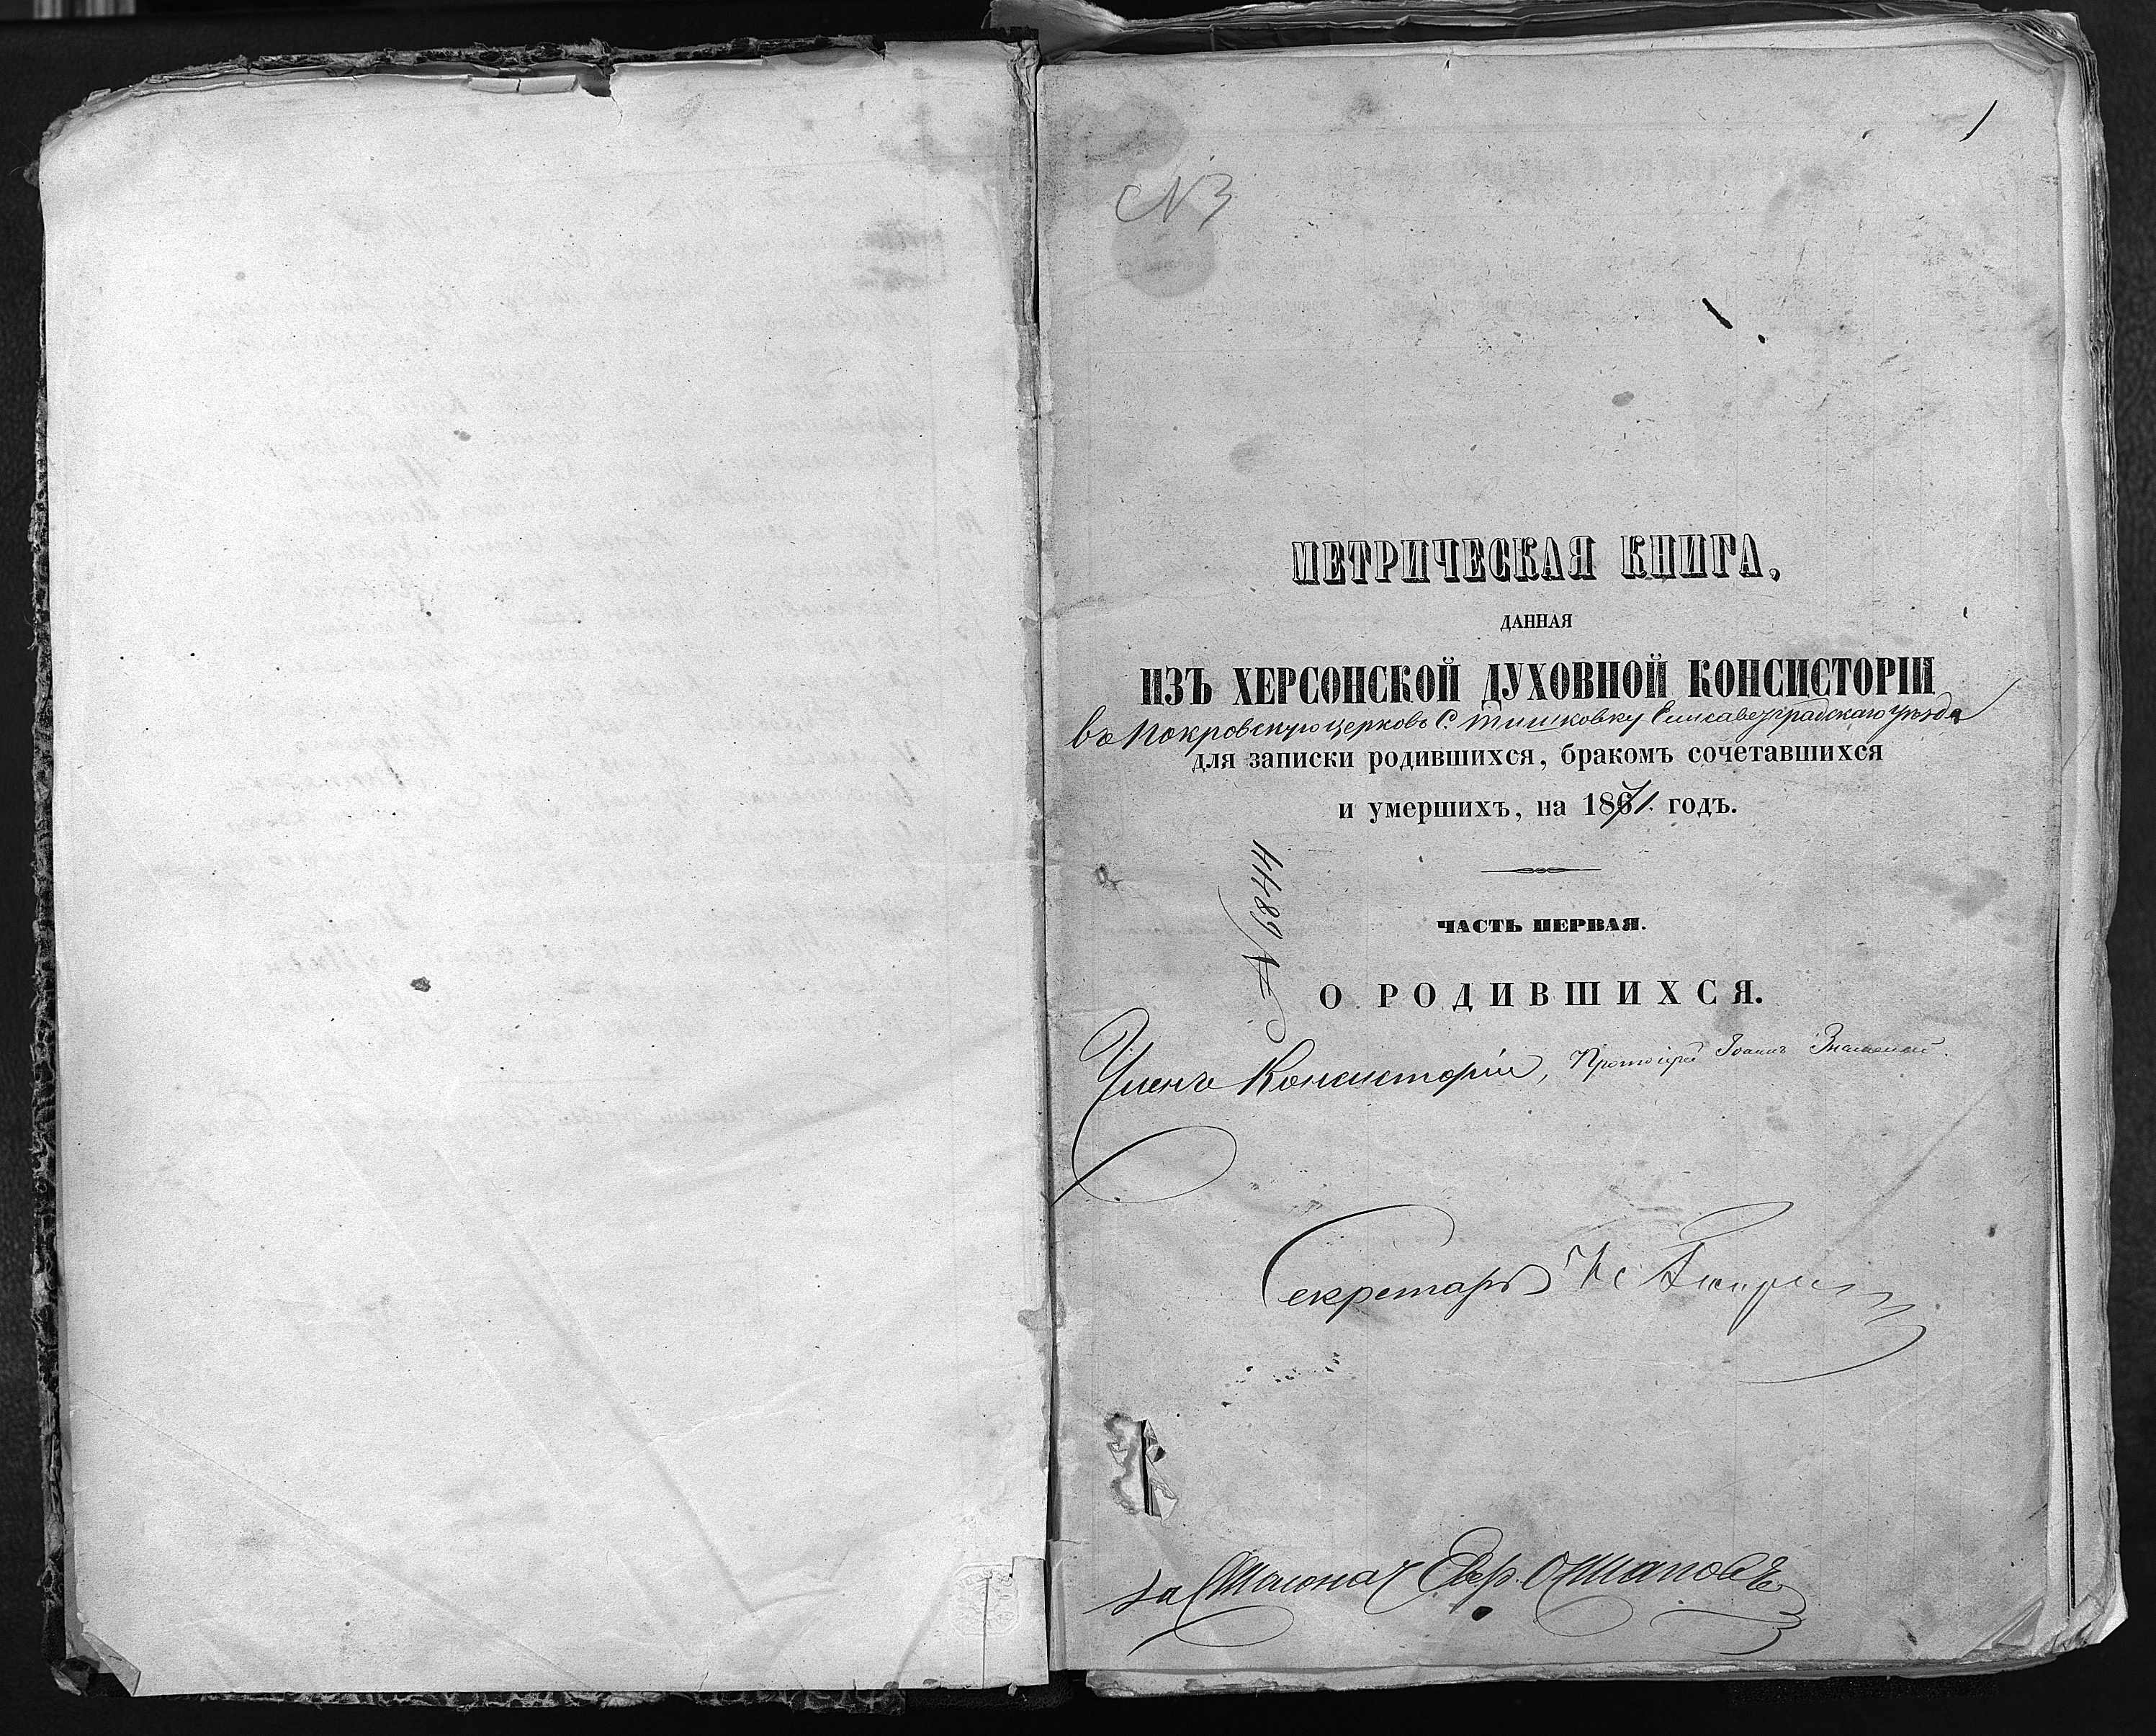 1
N 3
МЕТРИЧЕСКАЯ КНИГА,
ДАННАЯ
ИЗЪ ХЕРСОНСКОЙ ДУХОВНОЙ КОНСИСТОРІИ
въ Покровскую церковь С. Тишковку Елисаветградскаго уѣзда
для записки родившихся, бракомъ сочетавшихся
и умершихъ, на 1871 годъ.
N 6844
ЧАСТЬ ПЕРВАЯ.
О РОДИВШИХСЯ.
Членъ Консисторіи, Протоіерей Іоаннъ
Секретарь
за Столонач